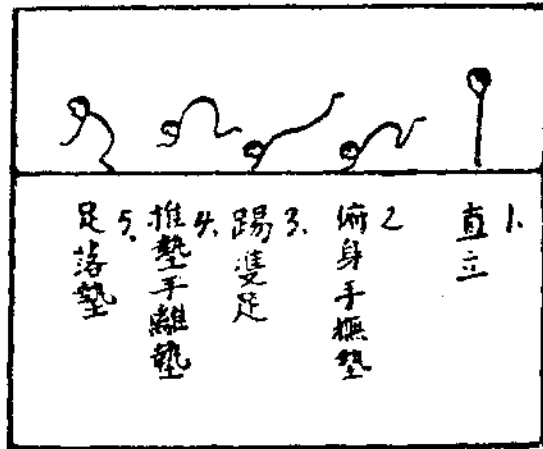 1. 直立
2 俯身手撫墊
3. 踢雙足
4. 推墊手離墊
5. 足落墊